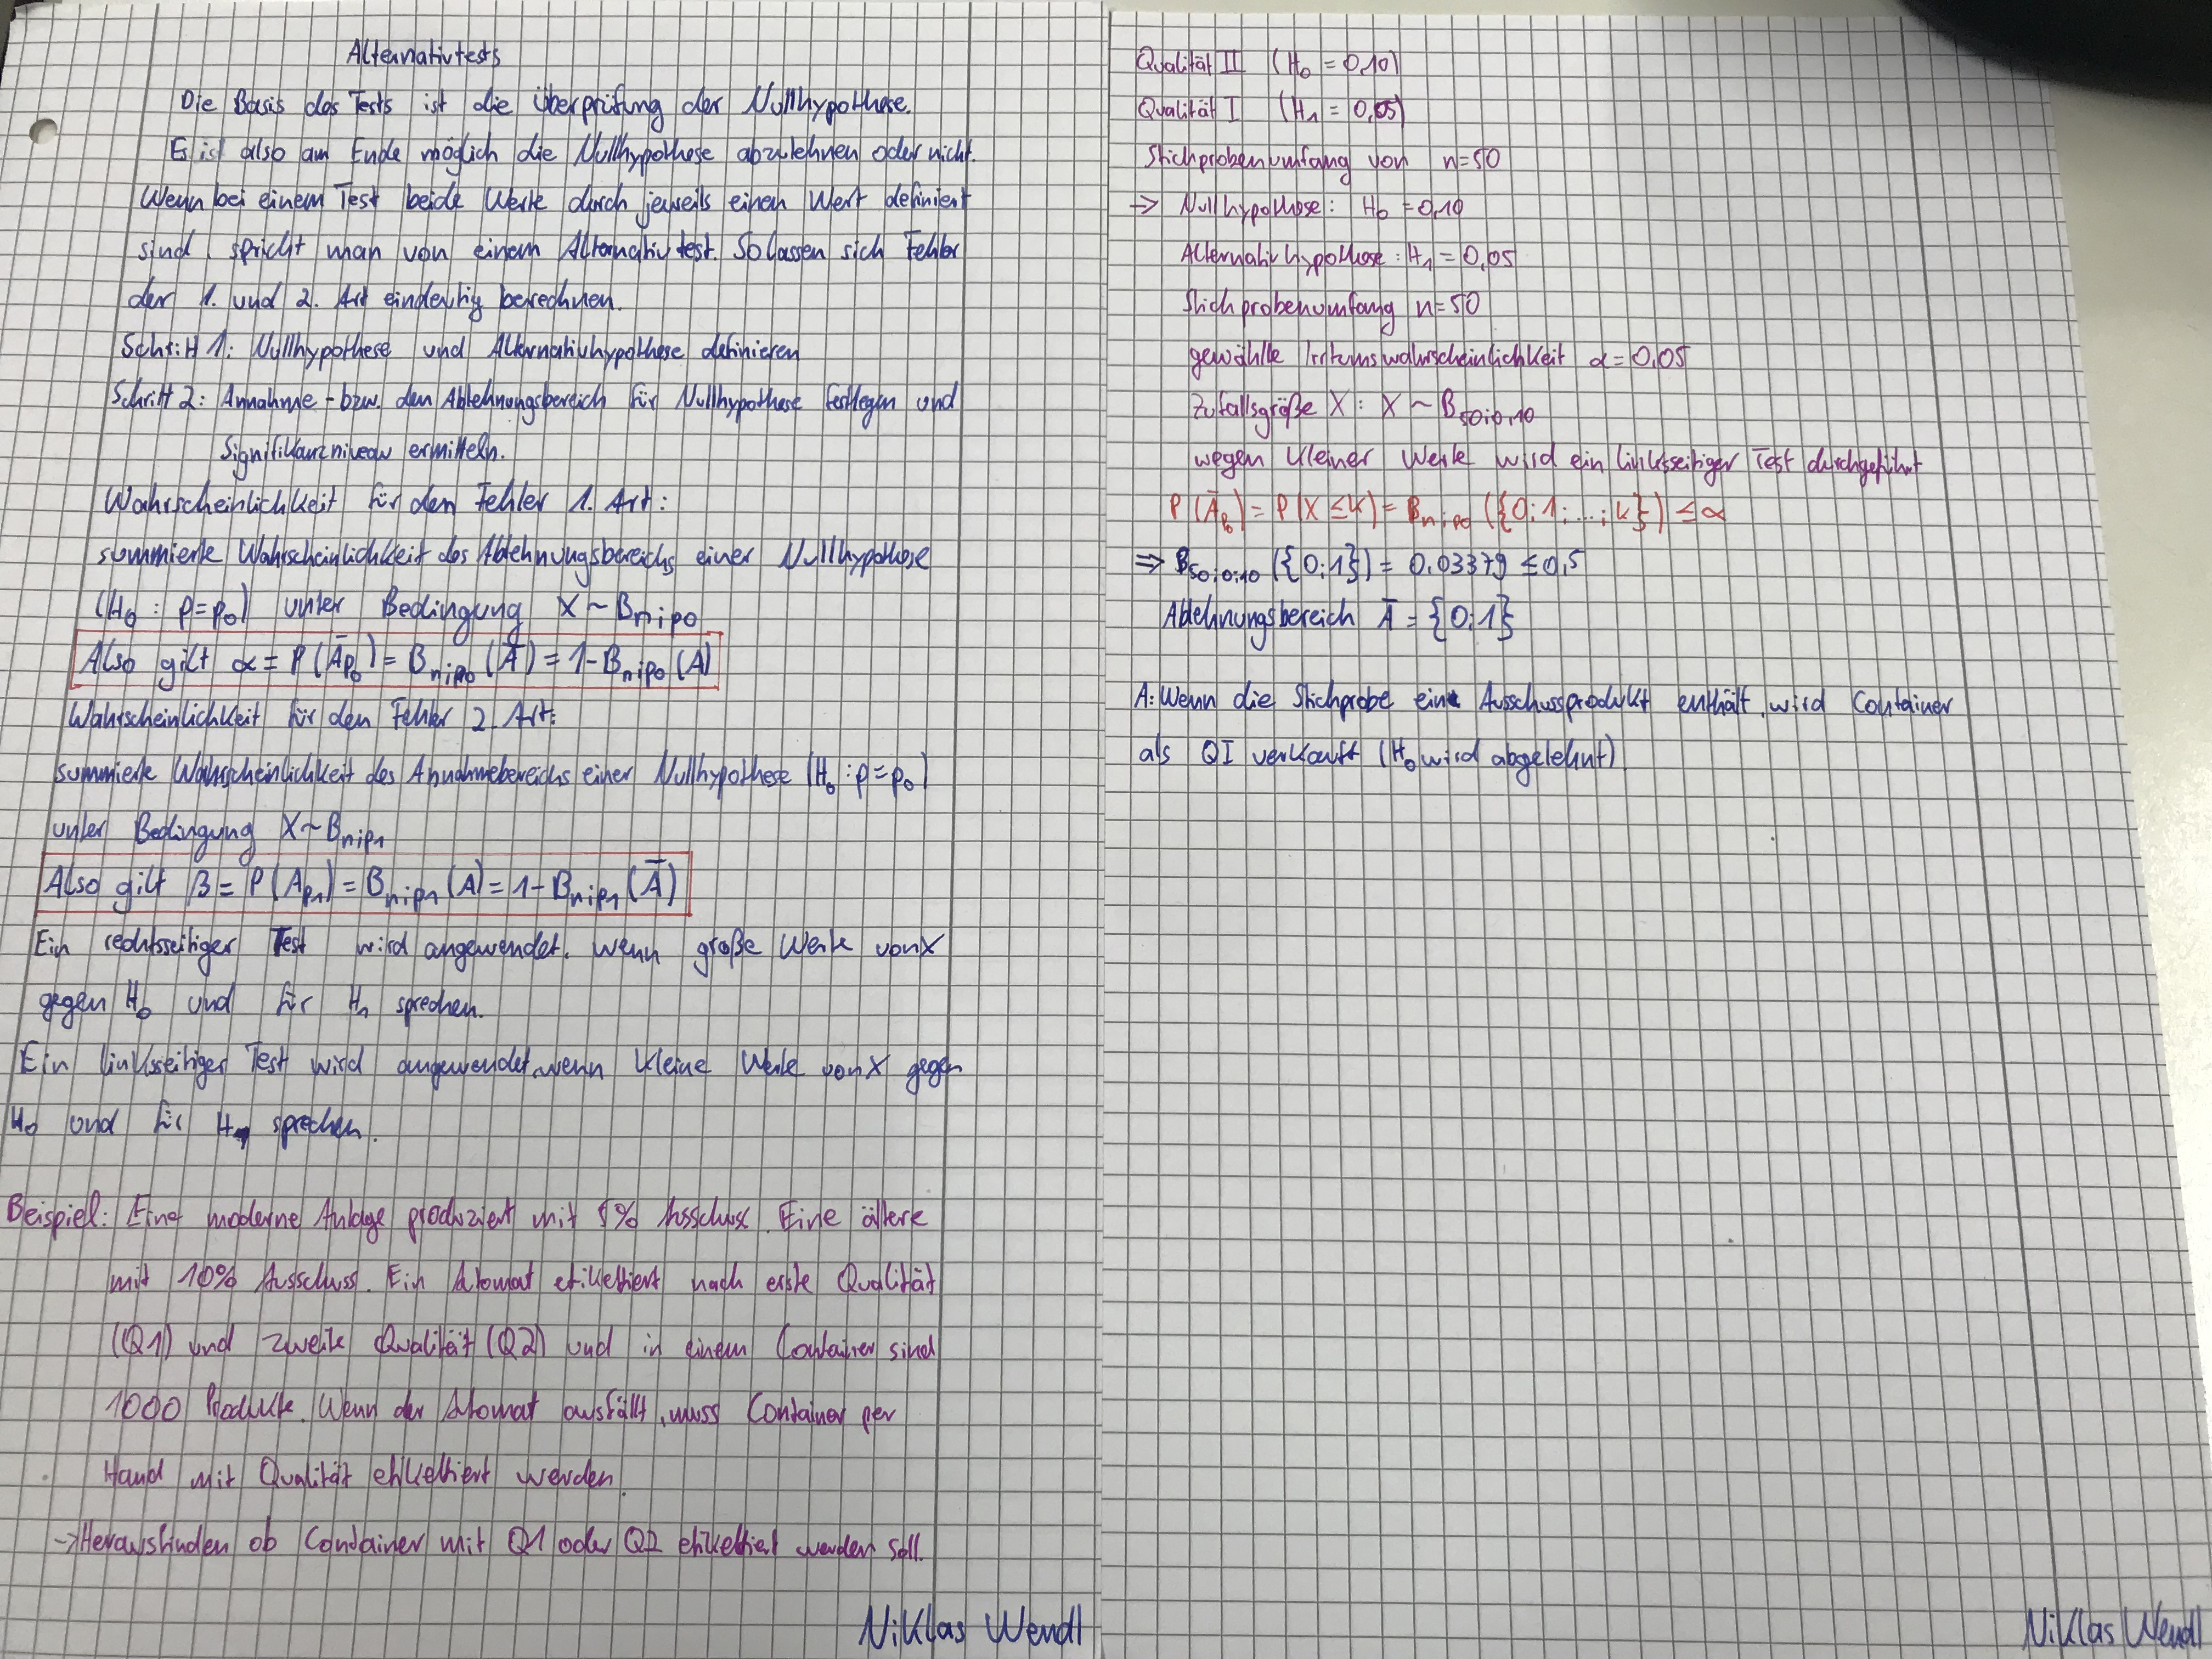 Alternativtests
Die Basis des Tests ist die Überprüfung der Nullhypothese.
Es ist also am Ende möglich die Nullhypothese abzulehnen oder nicht.
Wenn bei einem Test beide Werte durch jeweils einen Wert definiert
sind, spricht man von einem Alternativtest. So lassen sich Fehler
der 1. und 2. Art eindeutig berechnen.
Schritt 1: Nullhypothese und Alternativhypothese definieren
Schritt 2: Annahme- bzw. den Ablehnungsbereich für Nullhypothese festlegen und
Signifikanzniveau ermitteln.
Wahrscheinlichkeit für den Fehler 1. Art:
summierte Wahrscheinlichkeit des Ablehnungsbereichs einer Nullhypothese
(H₀ : p=p₀) unter Bedingung X~Bn;p₀
Also gilt α = P(Āp₀) = Bn;p₀(Ā) = 1-Bn;p₀(A)
Wahrscheinlichkeit für den Fehler 2. Art:
summierte Wahrscheinlichkeit des Annahmebereichs einer Nullhypothese (H₀ : p=p₀)
unter Bedingung X~Bn;p₁
Also gilt β = P(Ap₁) = Bn;p₁(A) = 1-Bn;p₁(Ā)
Ein rechtsseitiger Test wird angewendet, wenn große Werte von X
gegen H₀ und für H₁ sprechen.
Ein linksseitiger Test wird angewendet, wenn kleine Werte von X gegen
H₀ und für H₁ sprechen.
Beispiel: Eine moderne Anlage produziert mit 5% Ausschuss. Eine ältere
mit 10% Ausschuss. Ein Automat etikettiert nach erste Qualität
(Q1) und zweite Qualität (Q2) und in einem Container sind
1000 Produkte. Wenn der Automat ausfällt, muss Container per
Hand mit Qualität etikettiert werden.
→Herausfinden ob Container mit Q1 oder Q2 etikettiert werden soll.
Niklas Wendl
Qualität II (H₀ = 0,10)
Qualität I (H₁ = 0,05)
Stichprobenumfang von n=50
⇒ Nullhypothese: H₀ = 0,10
Alternativhypothese: H₁ = 0,05
Stichprobenumfang n=50
gewählte Irrtumswahrscheinlichkeit α = 0,05
Zufallsgröße X: X ~ B50;0,10
wegen kleiner Werte wird ein linksseitiger Test durchgeführt
P(Āp₀) = P(X ≤ k) = Bn;p₀ ({0;1;...;k}) ≤ α
⇒ B50;0;10 ({0;1}) = 0.03379 ≤ 0,5
Ablehnungsbereich Ā = {0;1}
A: Wenn die Stichprobe ein Ausschussprodukt enthält, wird Container
als QI verkauft (H₀ wird abgelehnt)
Niklas Wendl